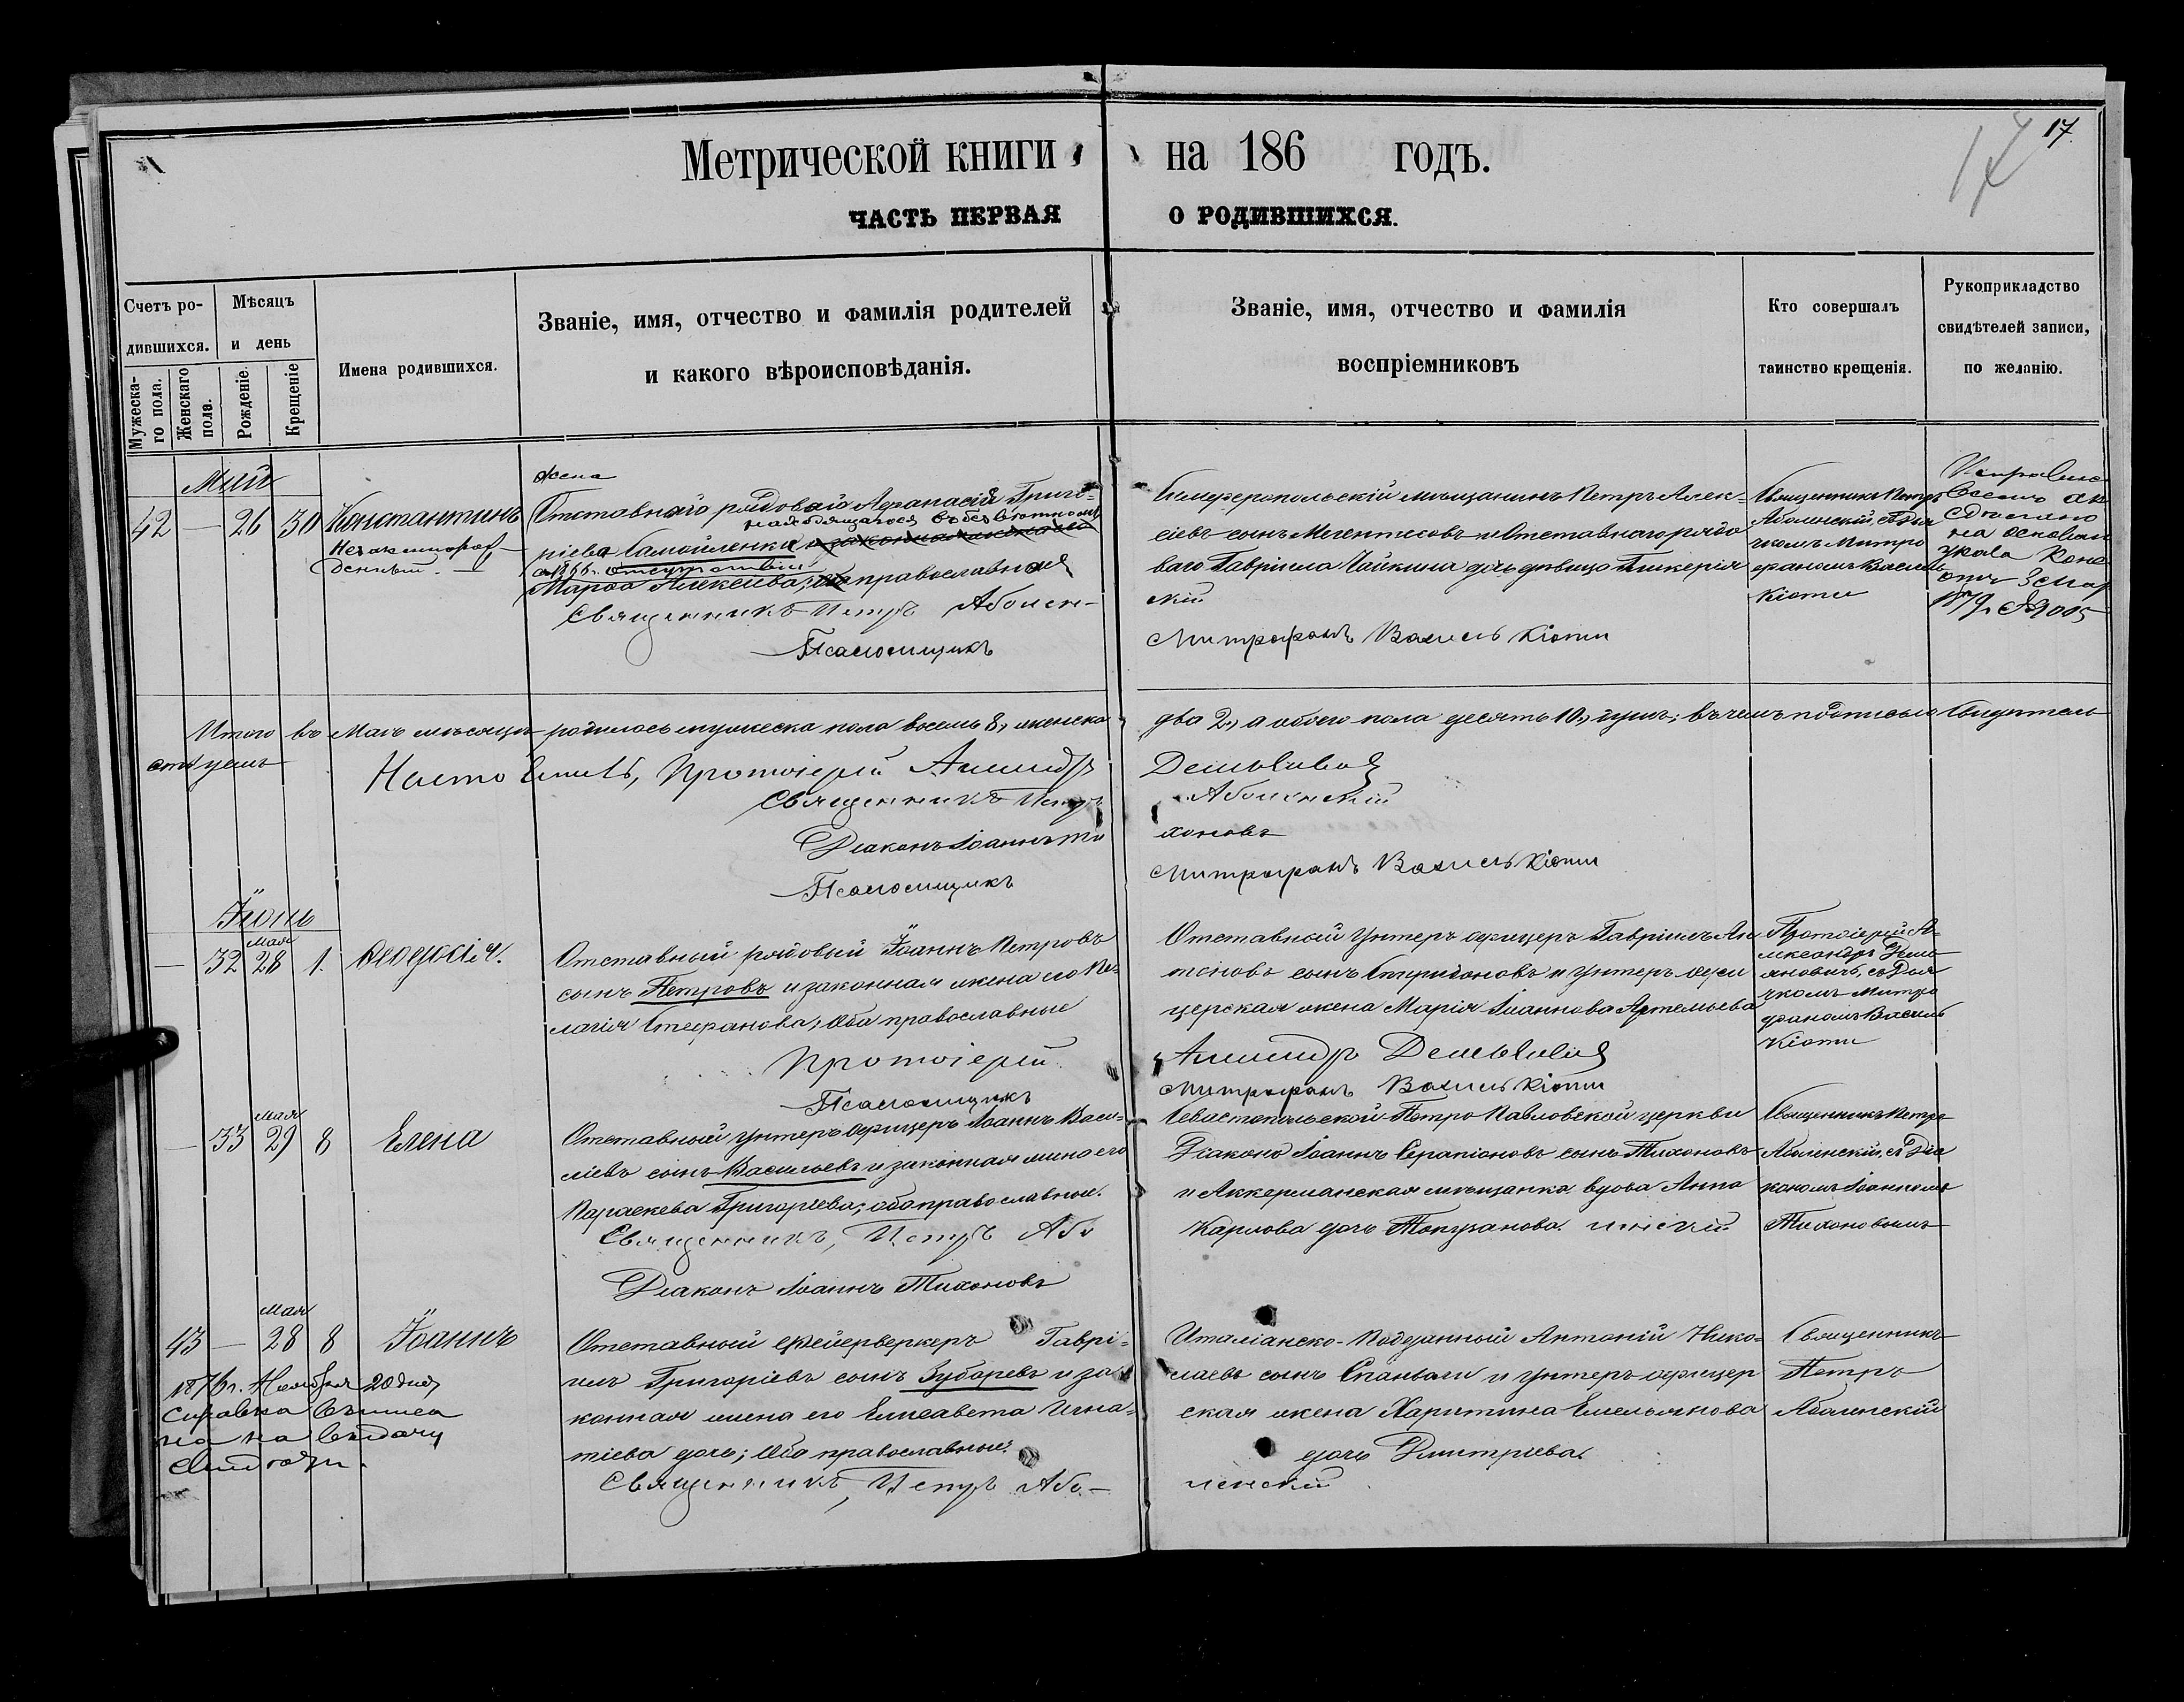 17
17
Метрической книги на 186 годъ.
ЧАСТЬ ПЕРВАЯ О РОДИВШИХСЯ.
Счетъ ро-
дившихся.
Мужеска-
го пола.
Женскаго
пола.
Мѣсяцъ
и день
Рожденіе.
Крещеніе
Имена родившихся.
Званіе, имя, отчество и фамилія родителей
и какого вѣроисповѣданія.
Званіе, имя, отчество и фамилія
воспріемниковъ
Кто совершалъ
таинство крещенія.
Рукоприкладство
свидѣтелей записи,
по желанію.
Май
42 — 26 30
Константинъ
Незаконнорож-
денный. —
жена
Отставного рядового Аѳанасія Григо-
находящагося въ безвѣстномъ
ріева Самойленка
отсутствіи
Марѳа Алексѣева, православная
Священникъ Петръ Аболен-
Псаломщикъ
Симферопольскій мѣщанинъ Петръ Алек-
сіевъ сынъ и отставного рядо
ваго Гавріила Чайкина дочь дѣвица Гликерія
скій
Митрофанъ Василькіоти
Священникъ Петръ
Аболенскій, съ Дья
чкомъ Митро
фаномъ Василь
кіоти
сдѣлано
на основан
указа Конс
Итого въ Маѣ мѣсяцѣ родилось мужеска пола восемь 8, женска два 2, а обоего пола десять 10, душъ; въ чемъ подписью свидѣтель
ствуемъ
Настоятель, Протоіерей Александръ Демьяновичъ
Священникъ Петръ Аболенскій
Діаконъ Іоаннъ Тихоновъ
Псаломщикъ Митрофанъ Василькіоти
Іюнь
— 32 Мая 28 1.
Ѳеодосія.
Отставный рядовый Іоаннъ Петровъ
сынъ Петровъ и законная жена его Пе-
лагія Стефанова, оба православные
Протоіерей
Псаломщикъ
Отставный Унтеръ офицеръ Гавріилъ Ан
тоновъ сынъ Спиридоновъ и Унтеръ офи
церская жена Марія Іоаннова Артемьева
Александръ Демьяновичъ
Митрофанъ Василькіоти
Протоіерей А-
лександръ Демь
яновичъ, съ Дья
чкомъ Митро
фаномъ Василь
кіоти
— 33 Мая 29 8
Елена
Отставный унтеръ офицеръ Іоаннъ Васи-
ліевъ сынъ Васильевъ и законная жена его
Параскева Григоріева; оба православные.
Священникъ, Петръ Або
Діаконъ Іоаннъ Тихоновъ
Севастопольской Петро Павловской церкви
Діаконъ Іоаннъ Серапіоновъ сынъ Тихоновъ
и Аккерманская мѣщанка вдова Анна
Карлова дочь Топузанова. ленскій
Священникъ Петръ
Аболенскій, съ Діа
кономъ Іоанномъ
Тихоновымъ
43 — Мая 28 8
Іоаннъ
1876 г. Ноября 20 дня
справка
на выдачу
Отставный фейерверкеръ Гаврі-
илъ Григоріевъ сынъ Зубаревъ и за
конная жена его Елисавета Игна-
тіева дочь; оба православные.
Священникъ, Петръ Або-
Италіанско-Подданный Антоній Нико-
лаевъ сынъ и унтеръ офицер
ская жена Харитина Емельянова
дочь Дмитріева.
ленскій
Священникъ
Петръ
Аболенскій